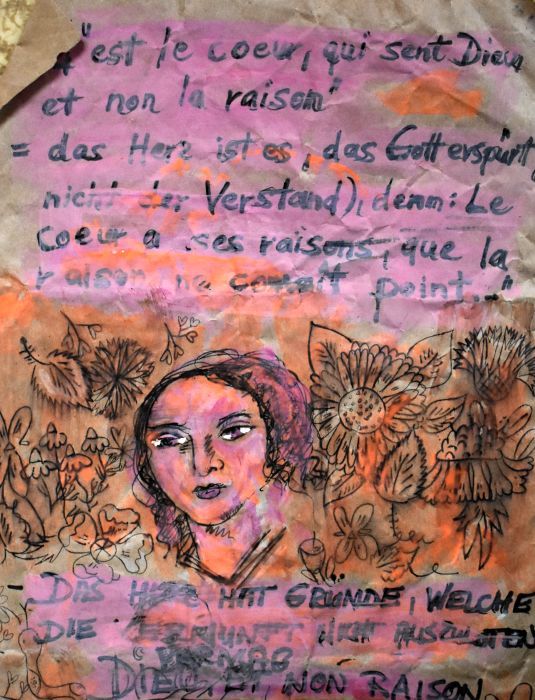 C"est le coeur, qui sent Dieu
et non la raison"
= das Herz ist es, das Gott erspürt,
nicht der Verstand), denn: Le
Coeur a ses raisons, que la
raison ne connaît point..."
- DAS HERZ HAT GRÜNDE, WELCHE
DIE VERNUNFT NICHT
VERMAG
DIEU ET NON RAISON